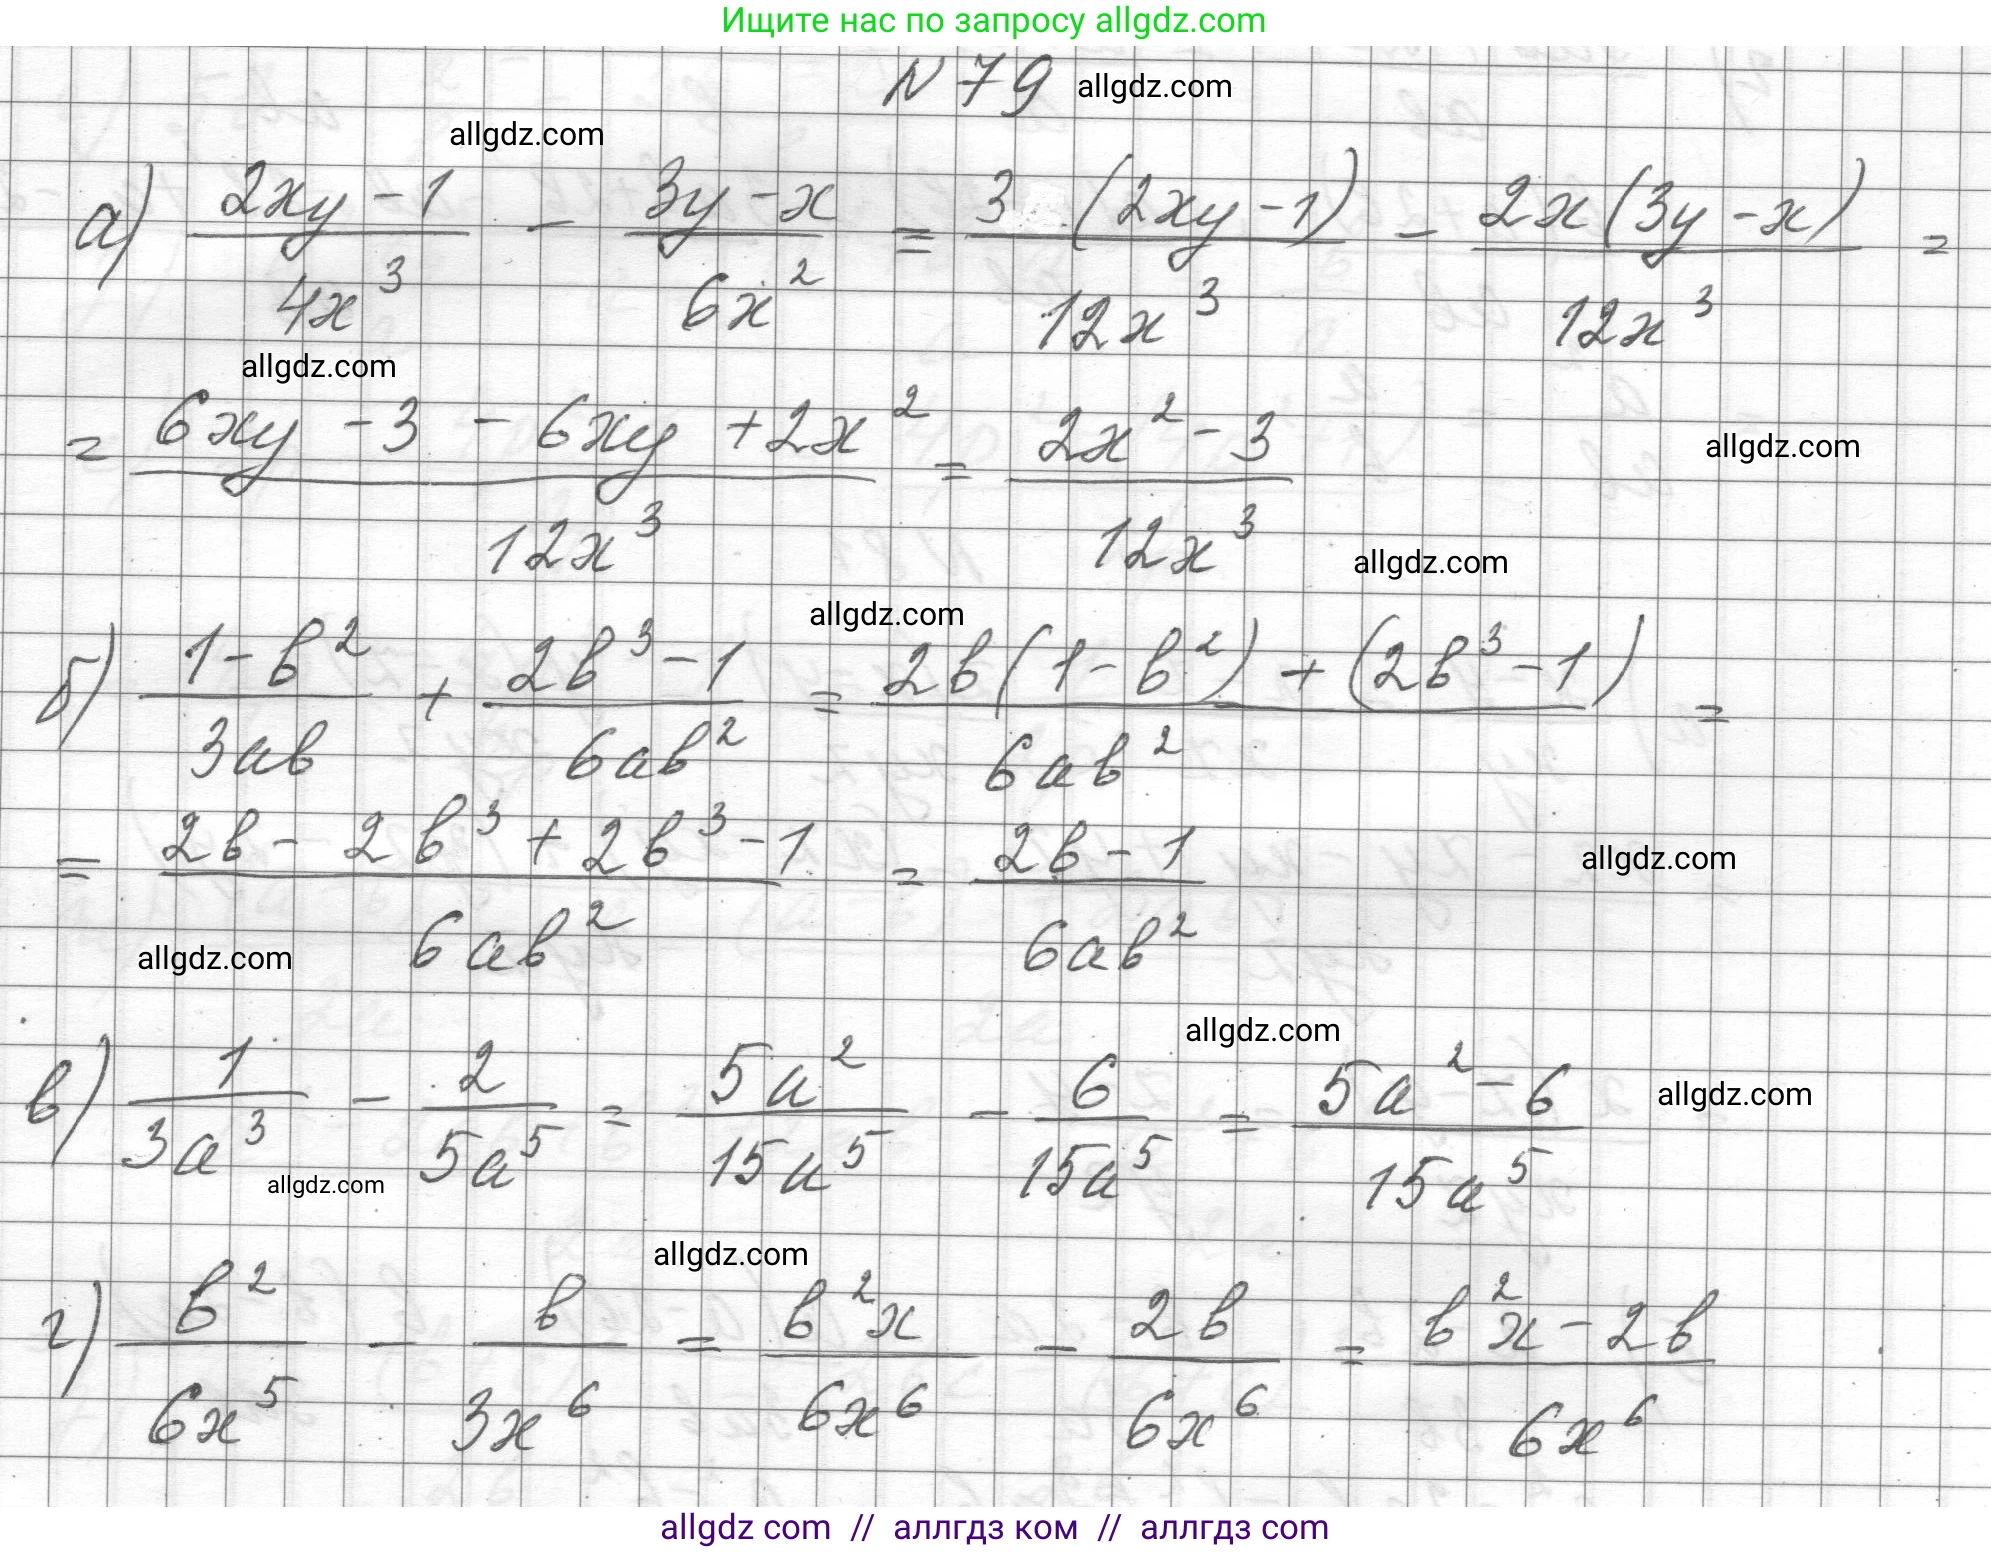 Ищите нас по запросу allgdz.com
N 79 allgdz.com
allgdz.com
а) (2xy - 1)/(4x³) - (3y - x)/(6x²) = (3 (2xy - 1))/(12x³) - (2x(3y - x))/(12x³) =
allgdz.com
= (6xy - 3 - 6xy + 2x²)/(12x³) = (2x² - 3)/(12x³)
allgdz.com
allgdz.com
allgdz.com
б) (1 - b²)/(3ab) + (2b³ - 1)/(6ab²) = (2b(1 - b²) + (2b³ - 1))/(6ab²) =
= (2b - 2b³ + 2b³ - 1)/(6ab²) = (2b - 1)/(6ab²)
allgdz.com
allgdz.com
allgdz.com
в) 1/(3a³) - 2/(5a⁵) = (5a²)/(15a⁵) - 6/(15a⁵) = (5a² - 6)/(15a⁵)
allgdz.com
allgdz.com
allgdz.com
г) b²/(6x⁵) - b/(3x⁶) = (b²x)/(6x⁶) - (2b)/(6x⁶) = (b²x - 2b)/(6x⁶)
allgdz com // аллгдз ком // аллгдз com